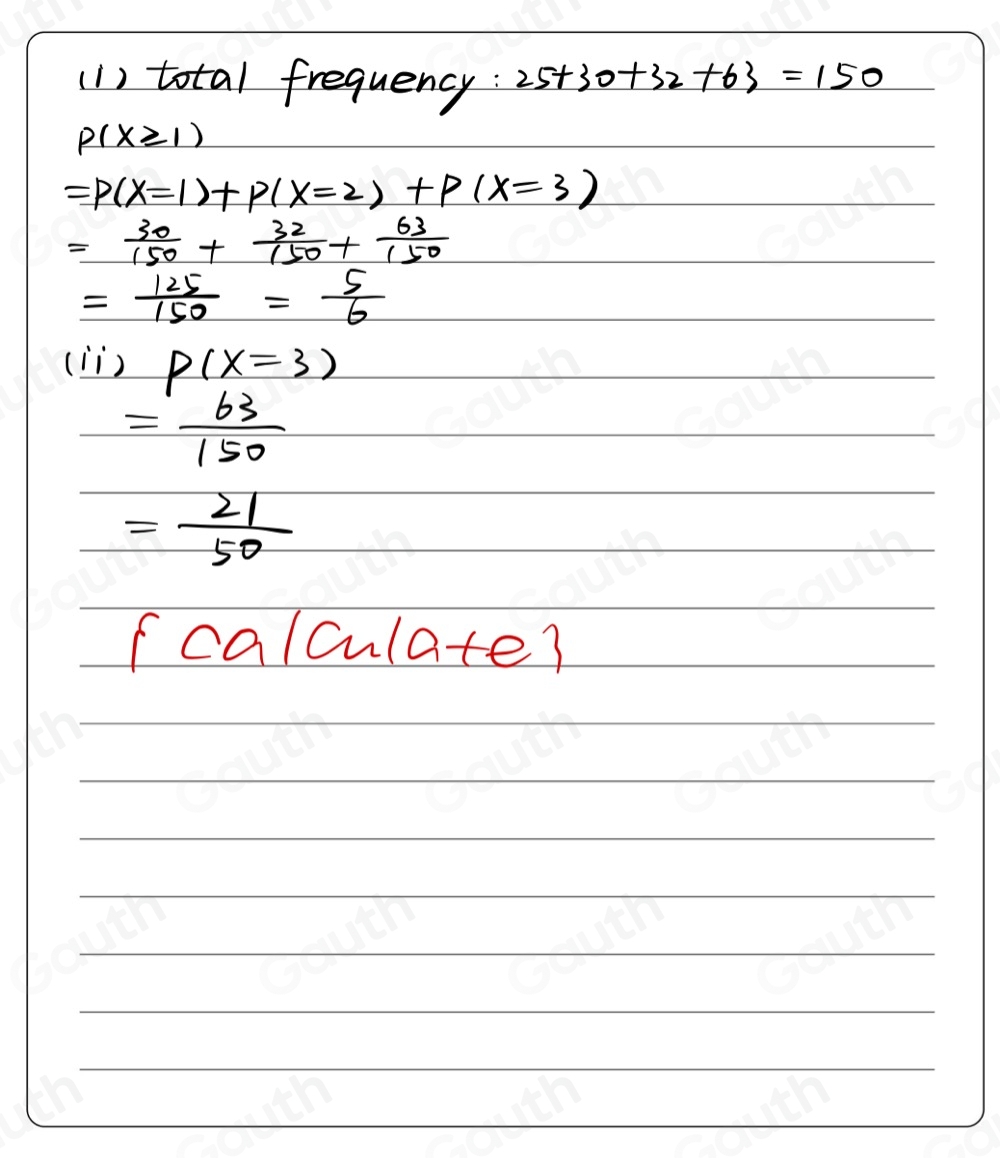 (i) total frequency: 25+30+32+63 = 150
P(X≥1)
=P(X=1)+P(X=2)+P(X=3)
= 30/150 + 32/150 + 63/150
= 125/150 = 5/6
(ii) P(X=3)
= 63/150
= 21/50
{calculate}